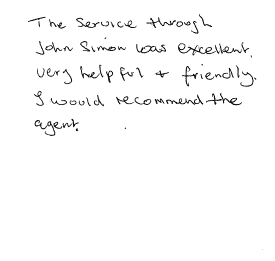 The service through
John Simon was excellent.
very helpful + friendly.
I would recommend the
agent.